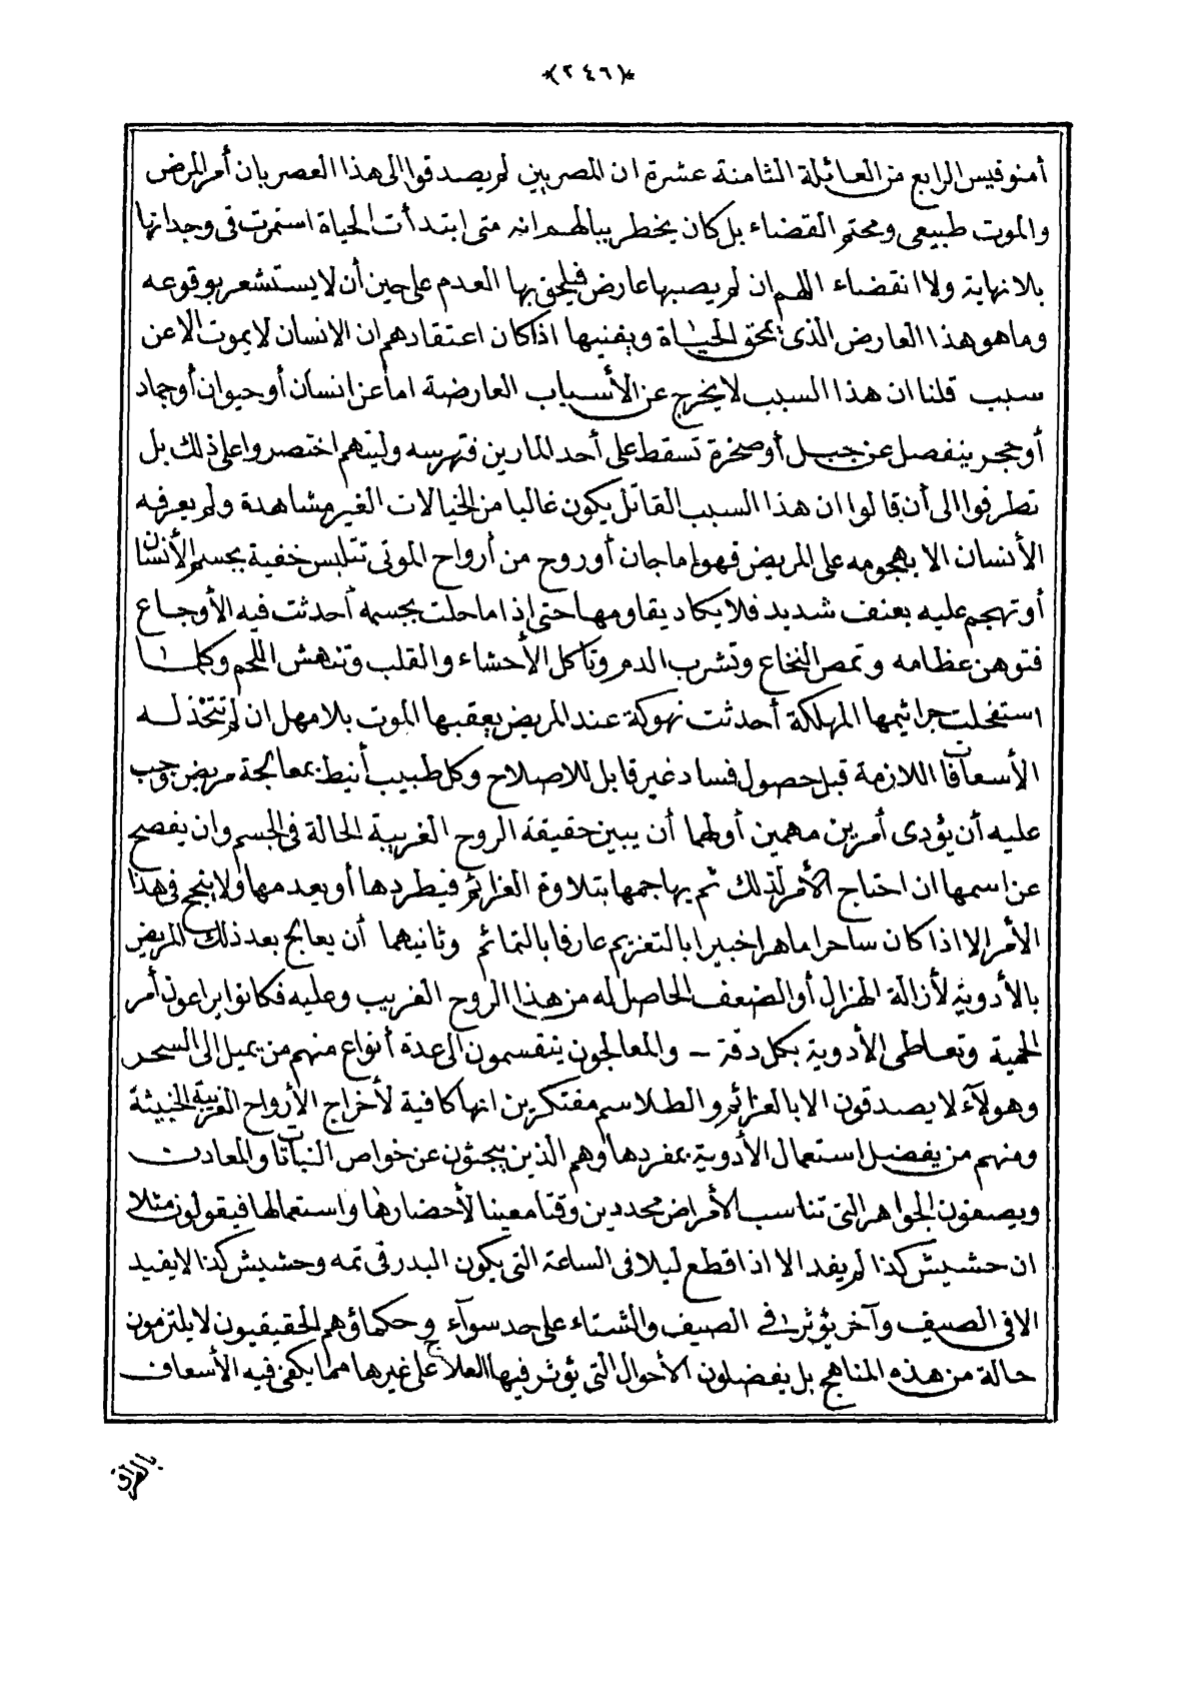 *(٢٤٦)*
أمنوفيس الرابع من العائلة الثامنة عشرة ان المصريين لم يصدقوا الى هذا العصر بان أمر المرض
والموت طبيعى ومحتم القضاء بل كان يخطر ببالهم انه متى ابتدأت الحياة استمرت فى وجدانها
بلا نهاية ولا انقضاء اللهم ان لم يصبها عارض فيلحق بها العدم على حين أن لا يستشعر بوقوعه
وما هو هذا العارض الذى يمحق الحياة ويفنيها اذا كان اعتقادهم ان الانسان لا يموت الا عن
سبب قلنا ان هذا السبب لا يخرج عن الأسباب العارضة اما عن انسان أو حيوان أو جماد
أو حجر ينفصل عن جبل أو صخرة تسقط على أحد المارين فتهرسه وليتهم اختصروا على ذلك بل
تطرفوا الى أن قالوا ان هذا السبب القاتل يكون غالبا من الخيالات الغير مشاهدة ولم يعرفه
الأنسان الا بهجومه على المريض فهو اما جان أو روح من أرواح الموتى تتلبس خفية بجسم الأنسان
أو تهجم عليه بعنف شديد فلا يكاد يقاومها حتى اذا ما حلت بجسمه أحدثت فيه الأوجاع
فتوهن عظامه وتمص النخاع وتشرب الدم وتأكل الأحشاء والقلب وتنهش اللحم وكلما
استفحلت جراثيمها المهلكة أحدثت نهوكة عند المريض يعقبها الموت بلا مهل ان لم تتخذ له
الأسعافات اللازمة قبل حصول فساد غير قابل للاصلاح وكل طبيب أنيط بمعالجة مريض وجب
عليه أن يؤدى أمرين مهمين أولهما أن يبين حقيقة الروح الغريبة الحالة فى الجسم وان يفصح
عن اسمها ان احتاج الأمر لذلك ثم يهاجمها بتلاوة العزائم فيطردها أو يعدمها ولا ينجح فى هذا
الأمر الا اذا كان ساحرا ماهرا خبيرا بالتعزيم عارفا بالتمائم وثانيهما أن يعالج بعد ذلك المريض
بالأدوية لأزالة الهزال أو الضعف الحاصل له من هذا الروح الغريب وعليه فكانوا يراعون أمر
الحمية وتعاطى الأدوية بكل دقة ــ والمعالجون ينقسمون الى عدة أنواع منهم من يميل الى السحر
وهولآء لا يصدقون الا بالعزائم والطلاسم مفتكرين انها كافية لأخراج الأرواح الغريبة الخبيثة
ومنهم من يفضل استعمال الأدوية بمفردها وهم الذين يبحثون عن خواص النباتات والمعادن
ويصفون الجواهر التى تناسب الأمراض محددين وقتا معينا لأحضارها واستعمالها فيقولون مثلا
ان حشيش كذا لم يفد الا اذا قطع ليلا فى الساعة التى يكون البدر فى تمه وحشيش كذا لا يفيد
الا فى الصيف وآخر يؤثر فى الصيف والشتاء على حد سوآء وحكماؤهم الحقيقيون لا يلتزمون
حالة من هذه المناهج بل يفضلون الأحوال التى يؤثر فيها العلاج على غيرها مما يكفى فيه الأسعاف